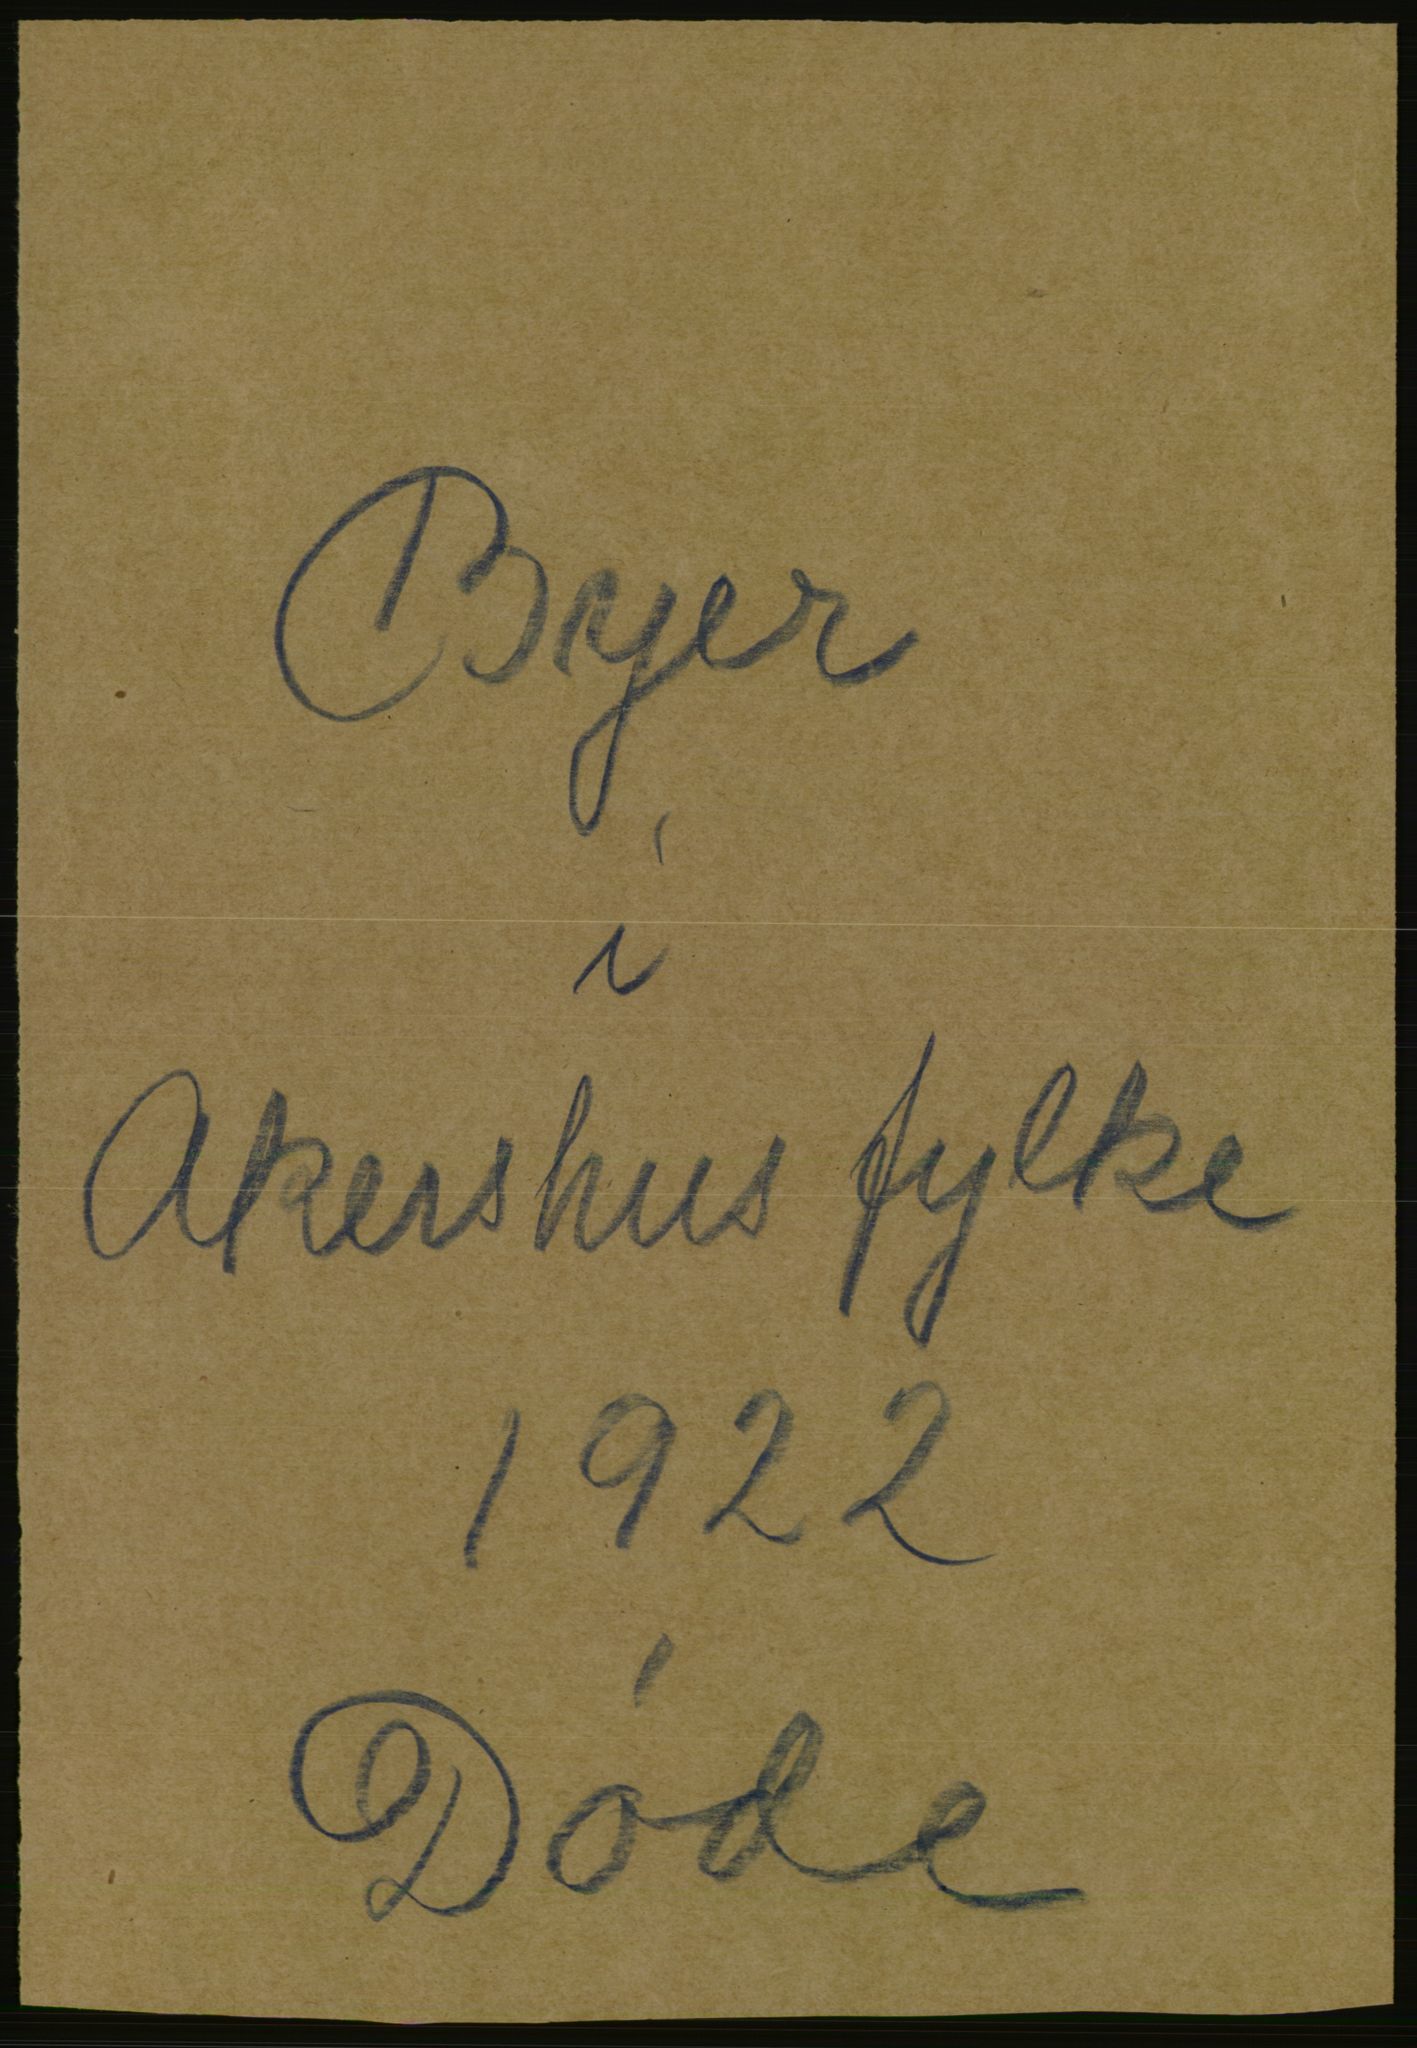 Byer
i
Akershus fylke
1922
Døde